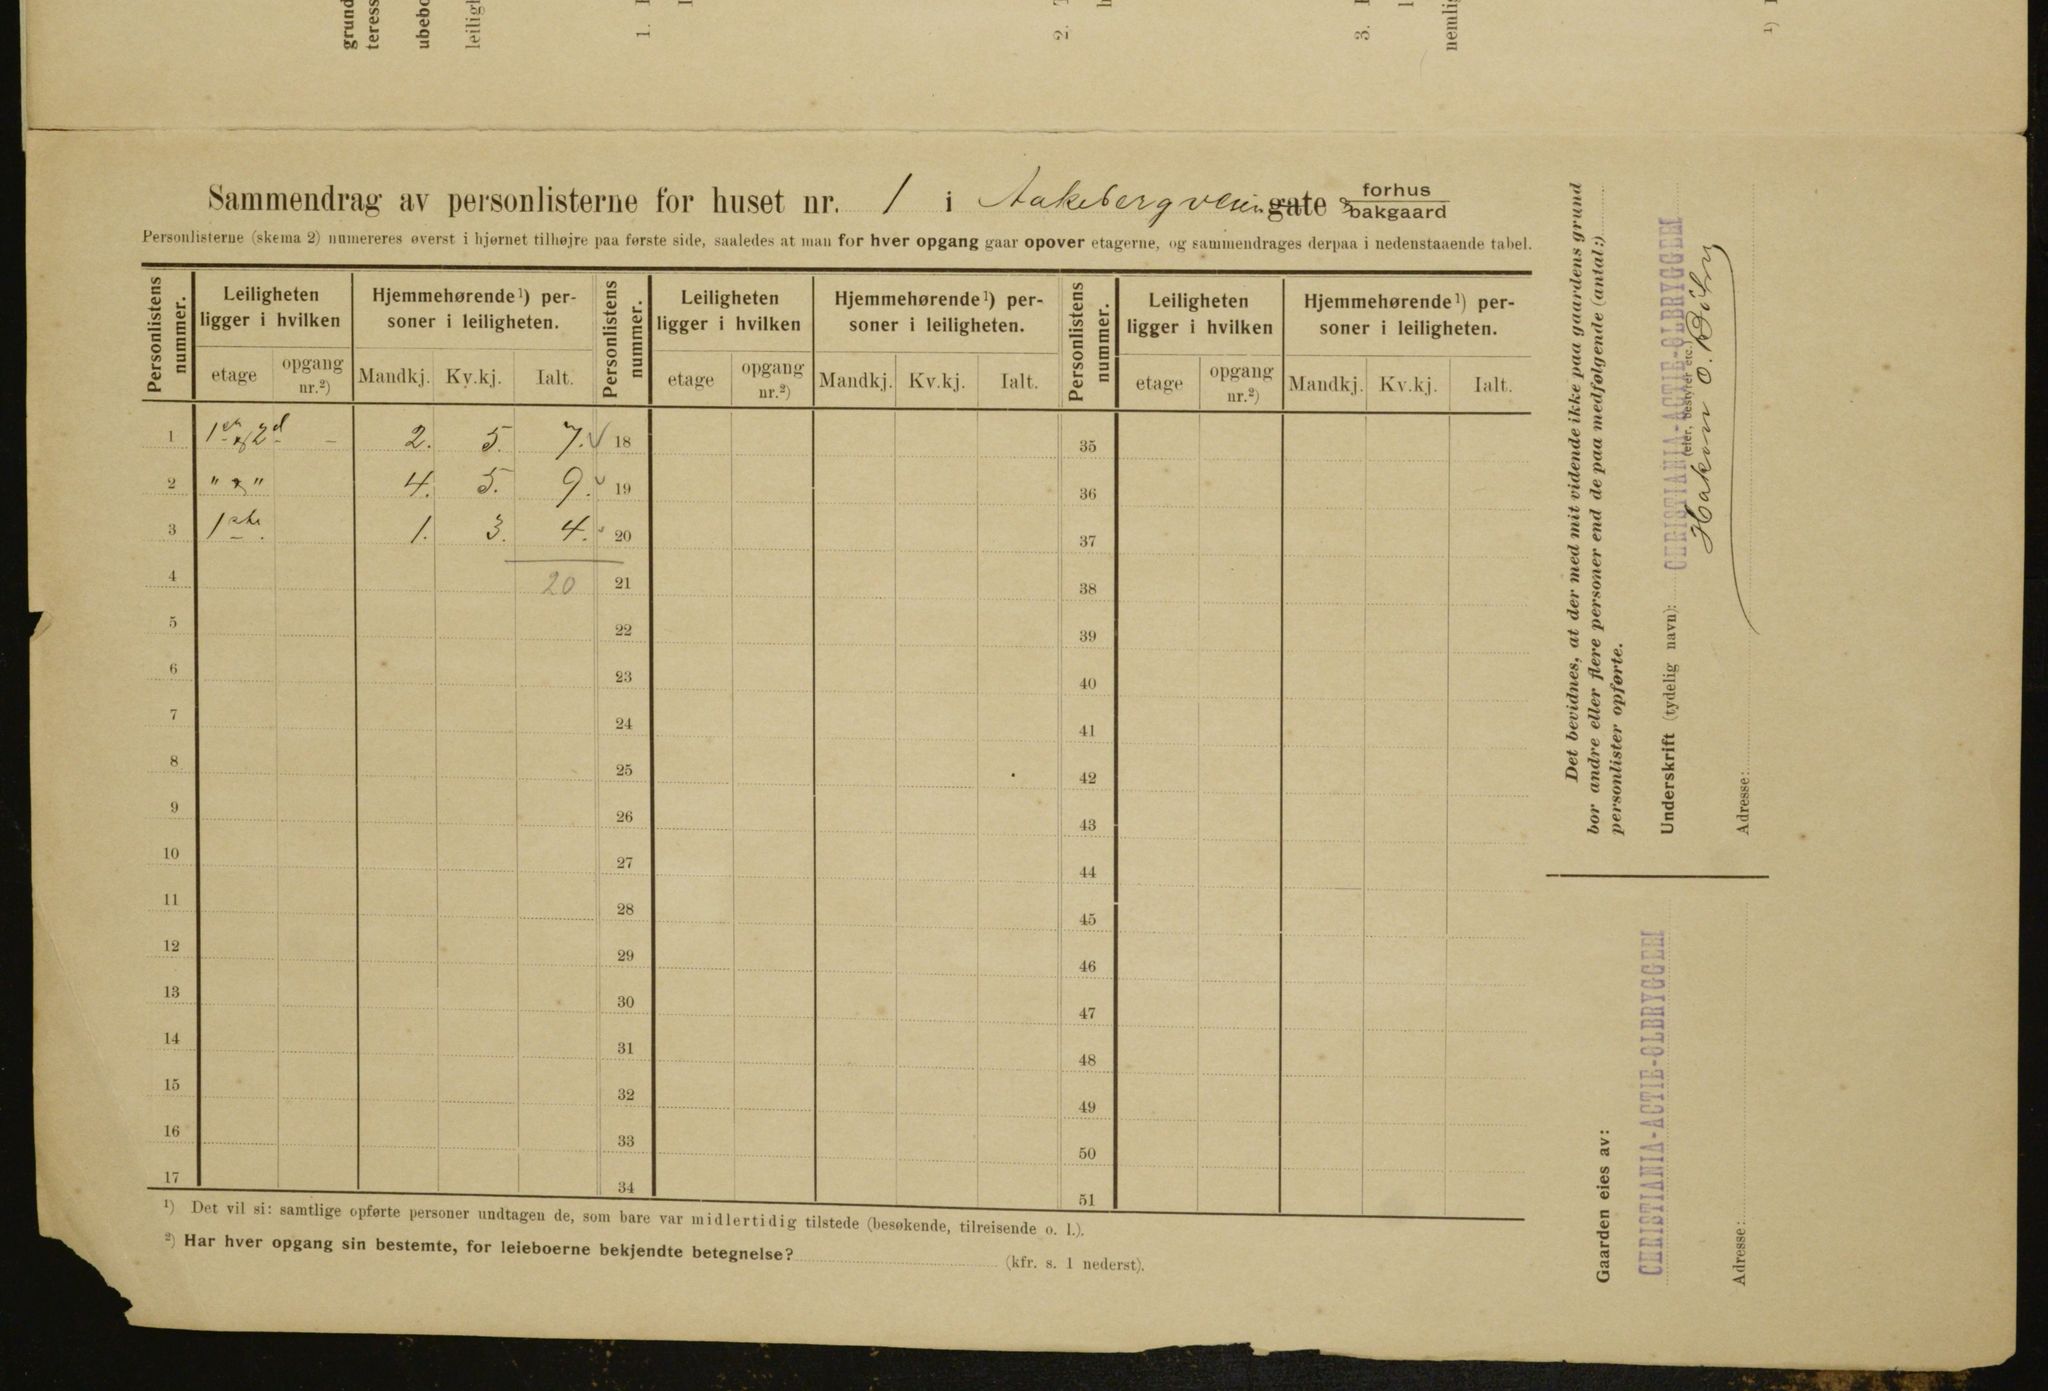 grund
teress
ubebo
leiligh
1.
2.
3.
nemlig
1)
Sammendrag av personlisterne for huset nr. 1 i Aakebergveien gate forhus bakgaard
Personlisterne (skema 2) numereres øverst i hjørnet tilhøjre paa første side, saaledes at man for hver opgang gaar opover etagerne, og sammendrages derpaa i nedenstaaende tabel.
Personlistens nummer. Leiligheten ligger i hvilken Hjemmehørende1) personer i leiligheten. Personlistens nummer. Leiligheten ligger i hvilken Hjemmehørende1) personer i leiligheten. Personlistens nummer. Leiligheten ligger i hvilken Hjemmehørende1) personer i leiligheten.
etage opgang nr.2) Mandkj. Kv.kj. Ialt. etage opgang nr.2) Mandkj. Kv.kj. Ialt. etage opgang nr.2) Mandkj. Kv.kj. Ialt.
1 2d - 2. 5. 7. 18 35
2 " & " 4. 5. 9. 19 36
3 1ste. 1. 3. 4. 20 37
4 20 21 38
5 22 39
6 23 40
7 24 41
8 25 42
9 26 43
10 27 44
11 28 45
12 29 46
13 30 47
14 31 48
15 32 49
16 33 50
17 34 51
1) Det vil si: samtlige opførte personer undtagen de, som bare var midlertidig tilstede (besøkende, tilreisende o. l.).
2) Har hver opgang sin bestemte, for leieboerne bekjendte betegnelse? (kfr. s. 1 nederst).
Det bevidnes, at der med mit vidende ikke paa gaardens grund
bor andre eller flere personer end de paa medfølgende (antal:)
personlister opførte.
Underskrift (tydelig navn): CHRISTIANIA-ACTIE-ØLBRYGGERI
(eier, bestyrer etc.)
Adresse:
Gaarden eies av:
CHRISTIANIA-ACTIE-ØLBRYGGERI
Adresse: